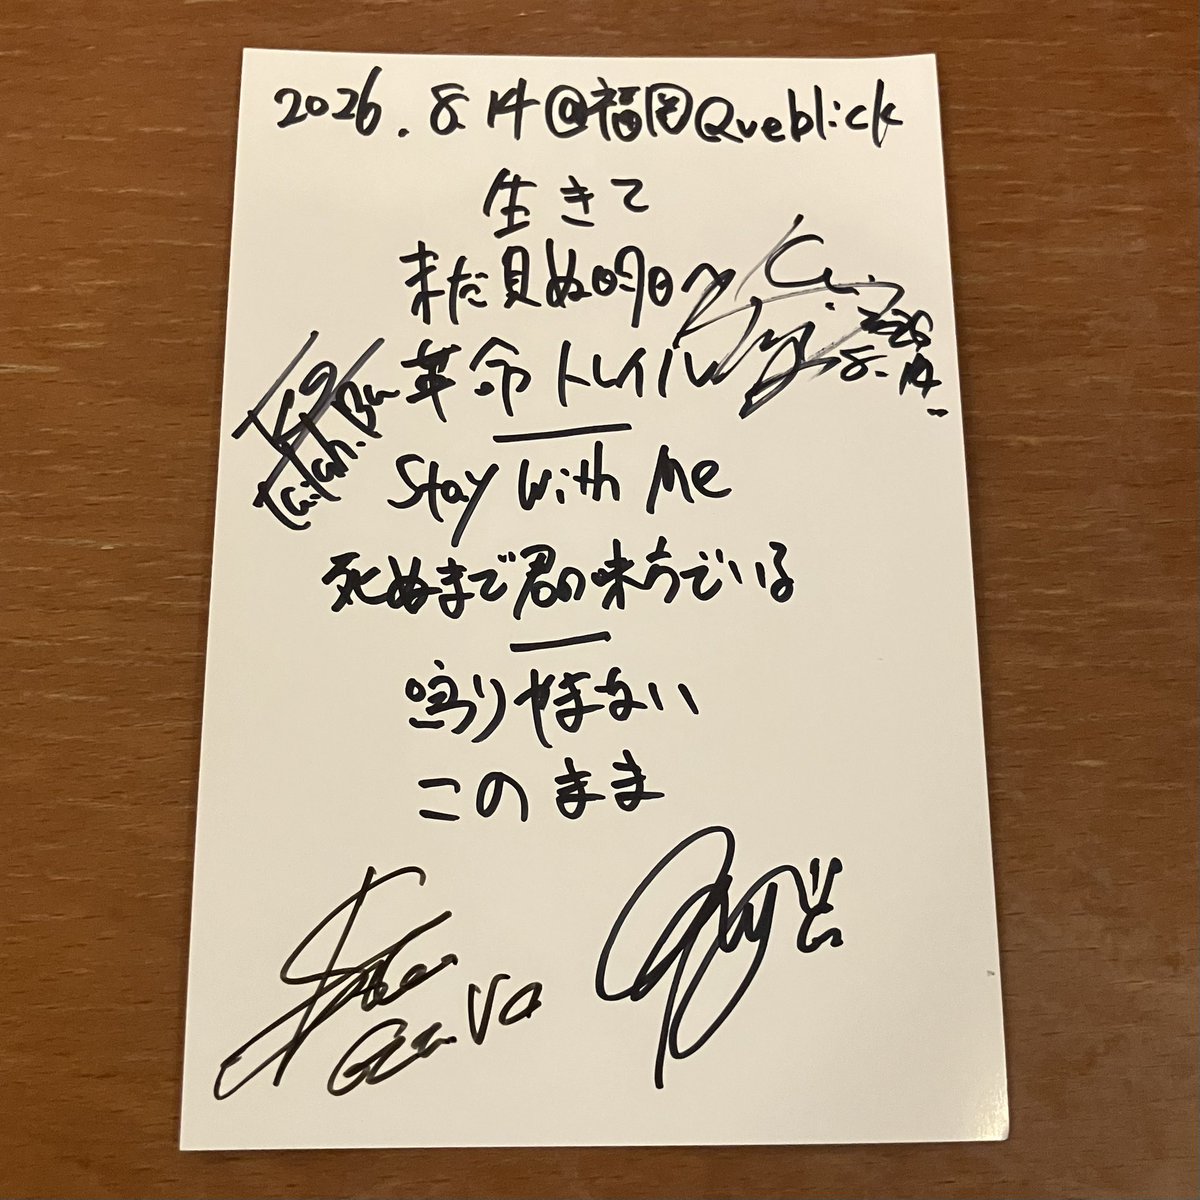 2026.8.14@福岡Queblick
生きて
まだ見ぬ明日へ
2026
8.14
革命トレイル
Stay With Me
死ぬまで君の味方でいる
鳴りやまない
このまま
Gt. Vo